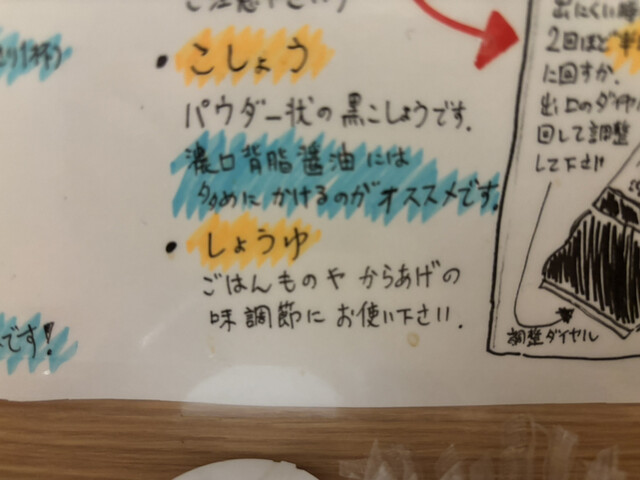 ご注意下さい
・こしょう
パウダー状の黒こしょうです。
濃口背脂醤油には
多めにかけるのがオススメです。
・しょうゆ
ごはんものや からあげの
味調節に お使い下さい.
です!
出にくい時
2回ほど
に回すか.
出口の
回して調整
して下さい
調整ダイヤル